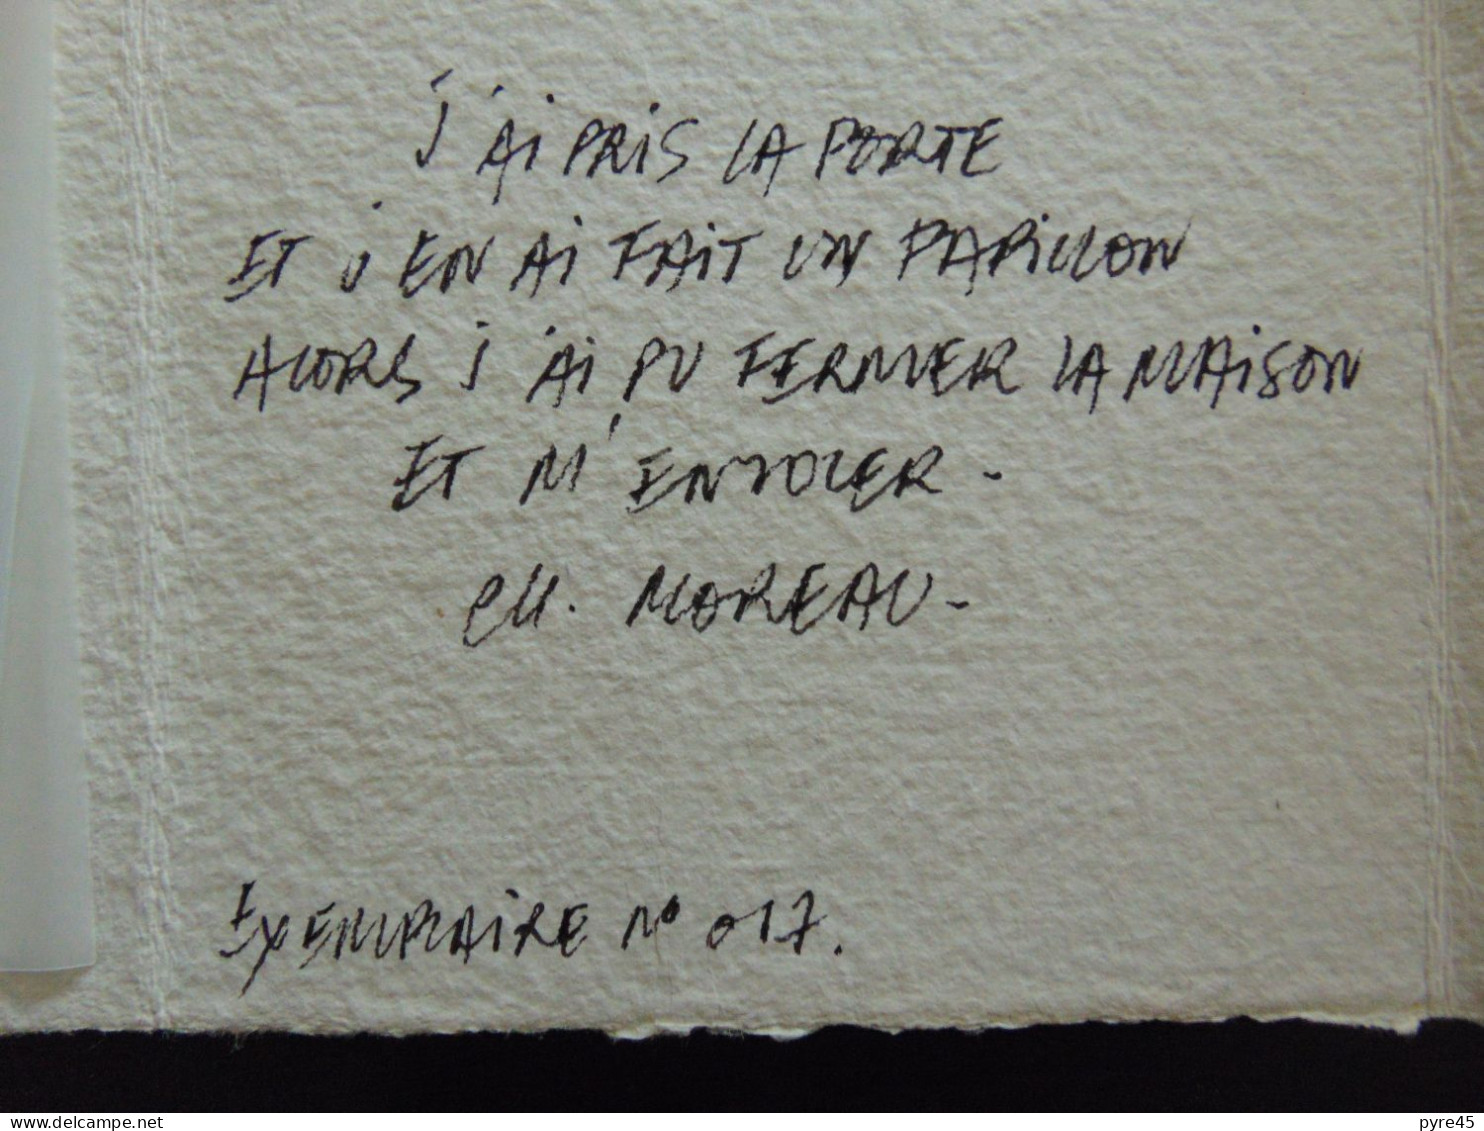 J'Ai PRiS LA PORTE
ET J'EN Ai FAiT UN PAPiLLON
ALORS J'Ai PU FERMER LA MAiSON
ET M'ENVOLER -
CH. MOREAU -
EXEMPLAiRE N° 017.
www.delcampe.net
pyre45